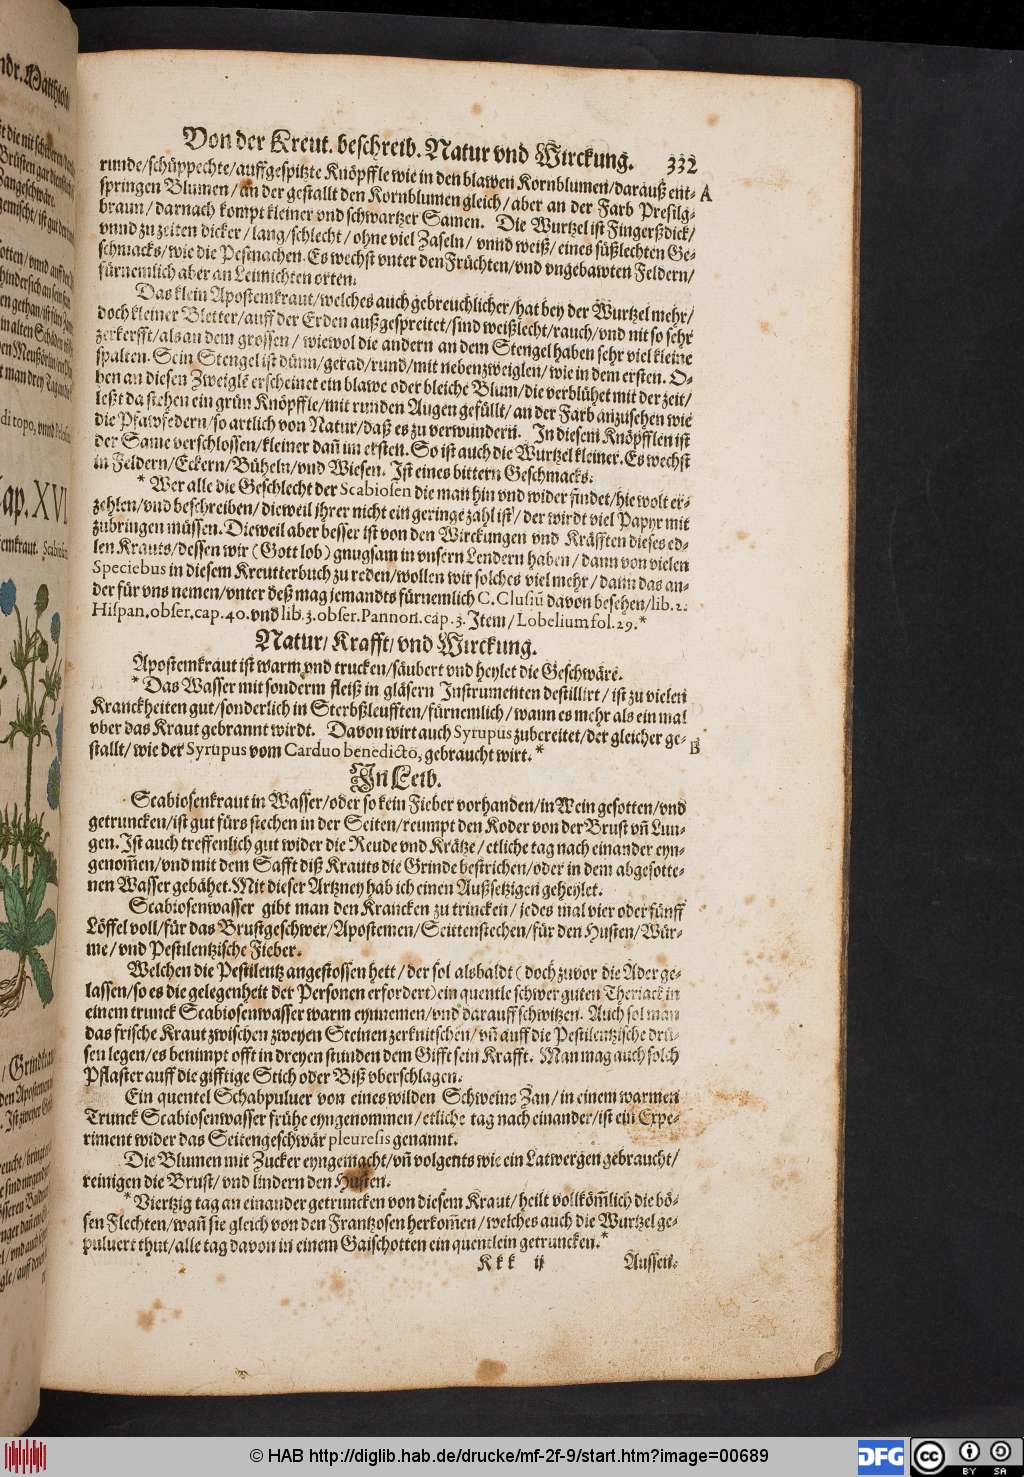 Von der Kreut. beschreib. Natur vnd Wirckung. 332
runde/schüppechte/auffgespitzte Knöpffle wie in den blawen Kornblumen/darauß ent- A
springen Blumen/an der gestallt den Kornblumen gleich/aber an der Farb Presilg-
braun/darnach kompt kleiner vnd schwartzer Samen. Die Wurtzel ist Fingerßdick/
vnnd zu zeiten dicker/lang/schlecht/ohne viel Zaseln/vnnd weiß/eines süßlechten Ge-
schmacks/wie die Pestinachen. Es wechst vnter den Früchten/vnd vngebawten Feldern/
fürnemlich aber an Leimichten orten.
Das klein Apostemkraut/welches auch gebreuchlicher/hat bey der Wurtzel mehr/
doch kleiner Bletter/auff der Erden außgespreitet/sind weißlecht/rauch/vnd nit so sehr
zerkerfft/als an dem grossen/wiewol die andern an dem Stengel haben sehr viel kleine
spalten. Sein Stengel ist dünn/gerad/rund/mit nebenzweiglen/wie in dem ersten. O-
ben an diesen Zweiglē erscheinet ein blawe oder bleiche Blum/die verblühet mit der zeit/
leßt da stehen ein grün Knöpffle/mit runden Augen gefüllt/an der Farb anzusehen wie
die Pfawfedern/so artlich von Natur/daß es zu verwundern. In diesem Knöpfflen ist
der Same verschlossen/kleiner dañ im ersten. So ist auch die Wurtzel kleiner. Es wechst
in Feldern/Eckern/Büheln/vnd Wiesen. Ist eines bittern Geschmacks.
* Wer alle die Geschlecht der Scabiosen die man hin vnd wider findet/hie wolt er-
zehlen/vnd beschreiben/dieweil jhrer nicht ein geringe zahl ist/der wirdt viel Papyr mit
zubringen müssen. Dieweil aber besser ist von den Wirckungen vnd Kräfften dieses ed-
len Krauts/dessen wir (Gott lob) gnugsam in vnsern Lendern haben/dann von vielen
Speciebus in diesem Kreutterbuch zu reden/wollen wir solches viel mehr/dann das an-
der für vns nemen/vnter deß mag jemandts fürnemlich C. Clusiū davon besehen/lib. 2.
Hispan. obser. cap. 40. vnd lib. 3. obser. Pannon. cap. 3. Item/Lobelium fol. 29. *
Natur/Krafft/vnd Wirckung.
Apostemkraut ist warm vnd trucken/säubert vnd heylet die Geschwäre.
* Das Wasser mit sonderm fleiß in gläsern Instrumenten destillirt/ist zu vielen
Kranckheiten gut/sonderlich in Sterbßleufften/fürnemlich/wann es mehr als ein mal
vber das Kraut gebrannt wirdt. Davon wirt auch Syrupus zubereitet/der gleicher ge- B
stallt/wie der Syrupus vom Carduo benedicto, gebraucht wirt. *
In Leib.
Scabiosenkraut in Wasser/oder so kein Fieber vorhanden/in Wein gesotten/vnd
getruncken/ist gut fürs stechen in der Seiten/reumpt den Koder von der Brust vñ Lun-
gen. Ist auch treffenlich gut wider die Reude vnd Krätze/etliche tag nach einander eyn-
genom̄en/vnd mit dem Safft diß Krauts die Grinde bestrichen/oder in dem abgesotte-
nen Wasser gebähet. Mit dieser Artzney hab ich einen Außsetzigen geheylet.
Scabiosenwasser gibt man den Krancken zu trincken/jedes mal vier oder fünff
Löffel voll/für das Brustgeschwer/Apostemen/Seittenstechen/für den Husten/Wür-
me/vnd Pestilentzische Fieber.
Welchen die Pestilentz angestossen hett/der sol alsbaldt (doch zuvor die Ader ge-
lassen/so es die gelegenheit der Personen erfordert) ein quentle schwer guten Theriack in
einem trunck Scabiosenwasser warm eynnemen/vnd darauff schwitzen. Auch sol man
das frische Kraut zwischen zweyen Steinen zerknitschen/vñ auff die Pestilentzische drü-
sen legen/es benimpt offt in dreyen stunden dem Gifft sein Krafft. Man mag auch solch
Pflaster auff die gifftige Stich oder Biß vberschlagen.
Ein quentel Schabpuluer von eines wilden Schweins Zan/in einem warmen
Trunck Scabiosenwasser frühe eyngenommen/etliche tag nach einander/ist ein Expe-
riment wider das Seitengeschwär pleuresis genannt.
Die Blumen mit Zucker eyngemacht/vñ volgents wie ein Latwergen gebraucht/
reinigen die Brust/vnd lindern den Husten.
* Viertzig tag an einander getruncken von diesem Kraut/heilt vollköm̄lich die bö-
sen Flechten/wañ sie gleich von den Frantzosen herkom̄en/welches auch die Wurtzel ge-
puluert thut/alle tag davon in einem Gaischotten ein quentlein getruncken. *
Kkk ij Aussen-
Cap. XVI
© HAB http://diglib.hab.de/drucke/mf-2f-9/start.htm?image=00689
DFG
cc BY SA